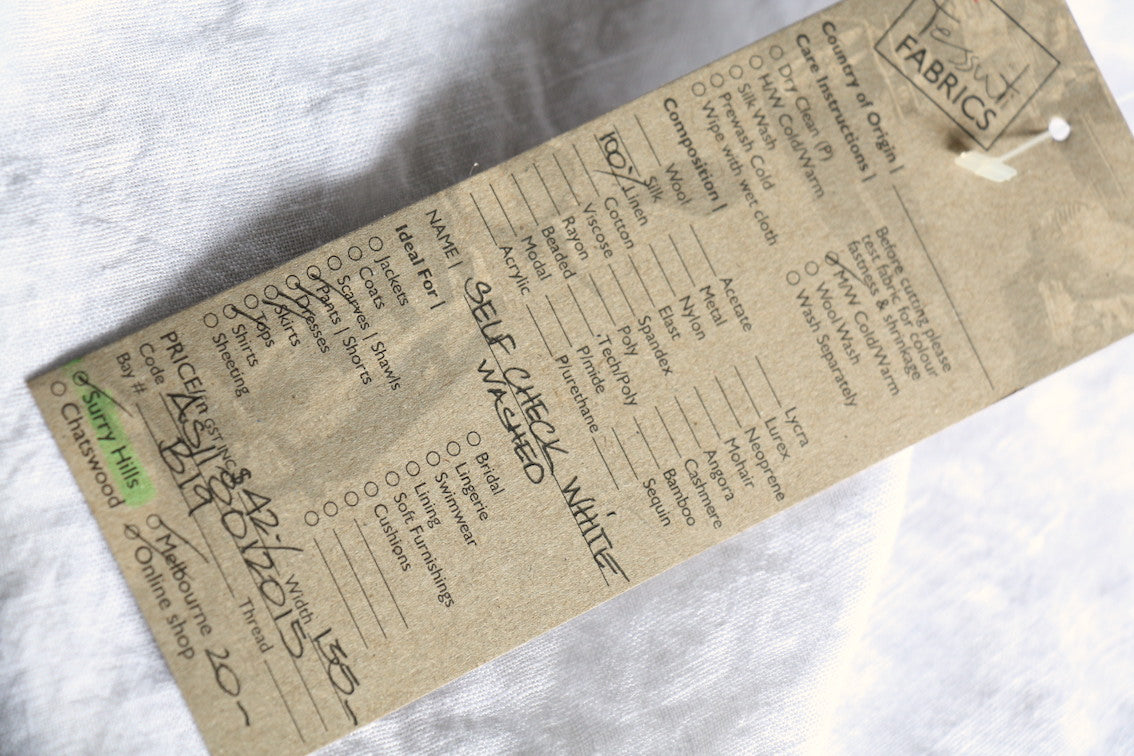 Tessuti
FABRICS
Country of Origin |
Care Instructions |
Dry Clean (P)
H/W Cold/Warm
Silk Wash
Prewash Cold
Wipe with wet cloth
Before cutting please
test fabric for colour
fastness & shrinkage
M/W Cold/Warm
Wool Wash
Wash Separately
Composition |
Wool Acetate Lycra
Silk Metal Lurex
100% Linen Nylon Neoprene
Cotton Elast Mohair
Viscose Spandex Angora
Rayon Poly Cashmere
Beaded Tech/Poly Bamboo
Modal P/mide Sequin
Acrylic P/urethane
NAME | SELF CHECK WHITE
WASHED
Ideal For |
Jackets Bridal
Coats Lingerie
Scarves | Shawls Swimwear
Pants | Shorts Lining
Dresses Soft Furnishings
Skirts Cushions
Tops
Shirts
Sheeting
PRICE/m GST INC $42.- Width 135
Code
Bay # B19 Thread
Surry Hills Melbourne 20
Chatswood Online shop